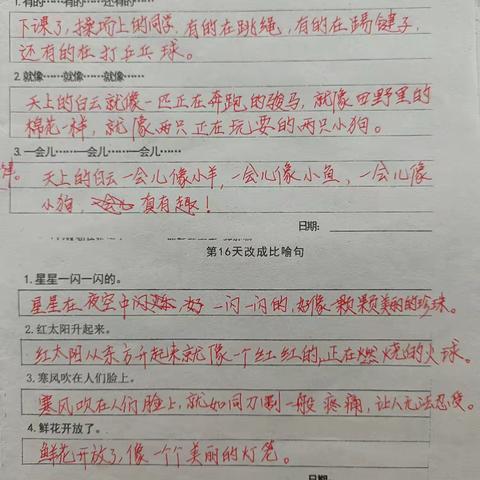 1. 有的……有的……还有的……
下课了,操场上的同学,有的在跳绳,有的在踢毽子,
还有的在打乒乓球。
2. 就像……就像……就像……
天上的白云就像一匹正在奔跑的骏马,就像田野里的
棉花一样,就像两只正在玩耍的两只小狗。
3. 一会儿……一会儿……一会儿……
天上的白云一会儿像小羊,一会儿像小鱼,一会儿像
小狗,真有趣!
日期:
第16天改成比喻句
1. 星星一闪一闪的。
星星在夜空中闪烁,好一闪一闪的,好像一颗颗美丽的珍珠。
2. 红太阳升起来。
红太阳从东方升起来就像一个红红的,正在燃烧的火球。
3. 寒风吹在人们脸上。
寒风吹在人们脸上,就如同刀割一般疼痛,让人无法忍受。
4. 鲜花开放了。
鲜花开放了,像一个个美丽的灯笼。